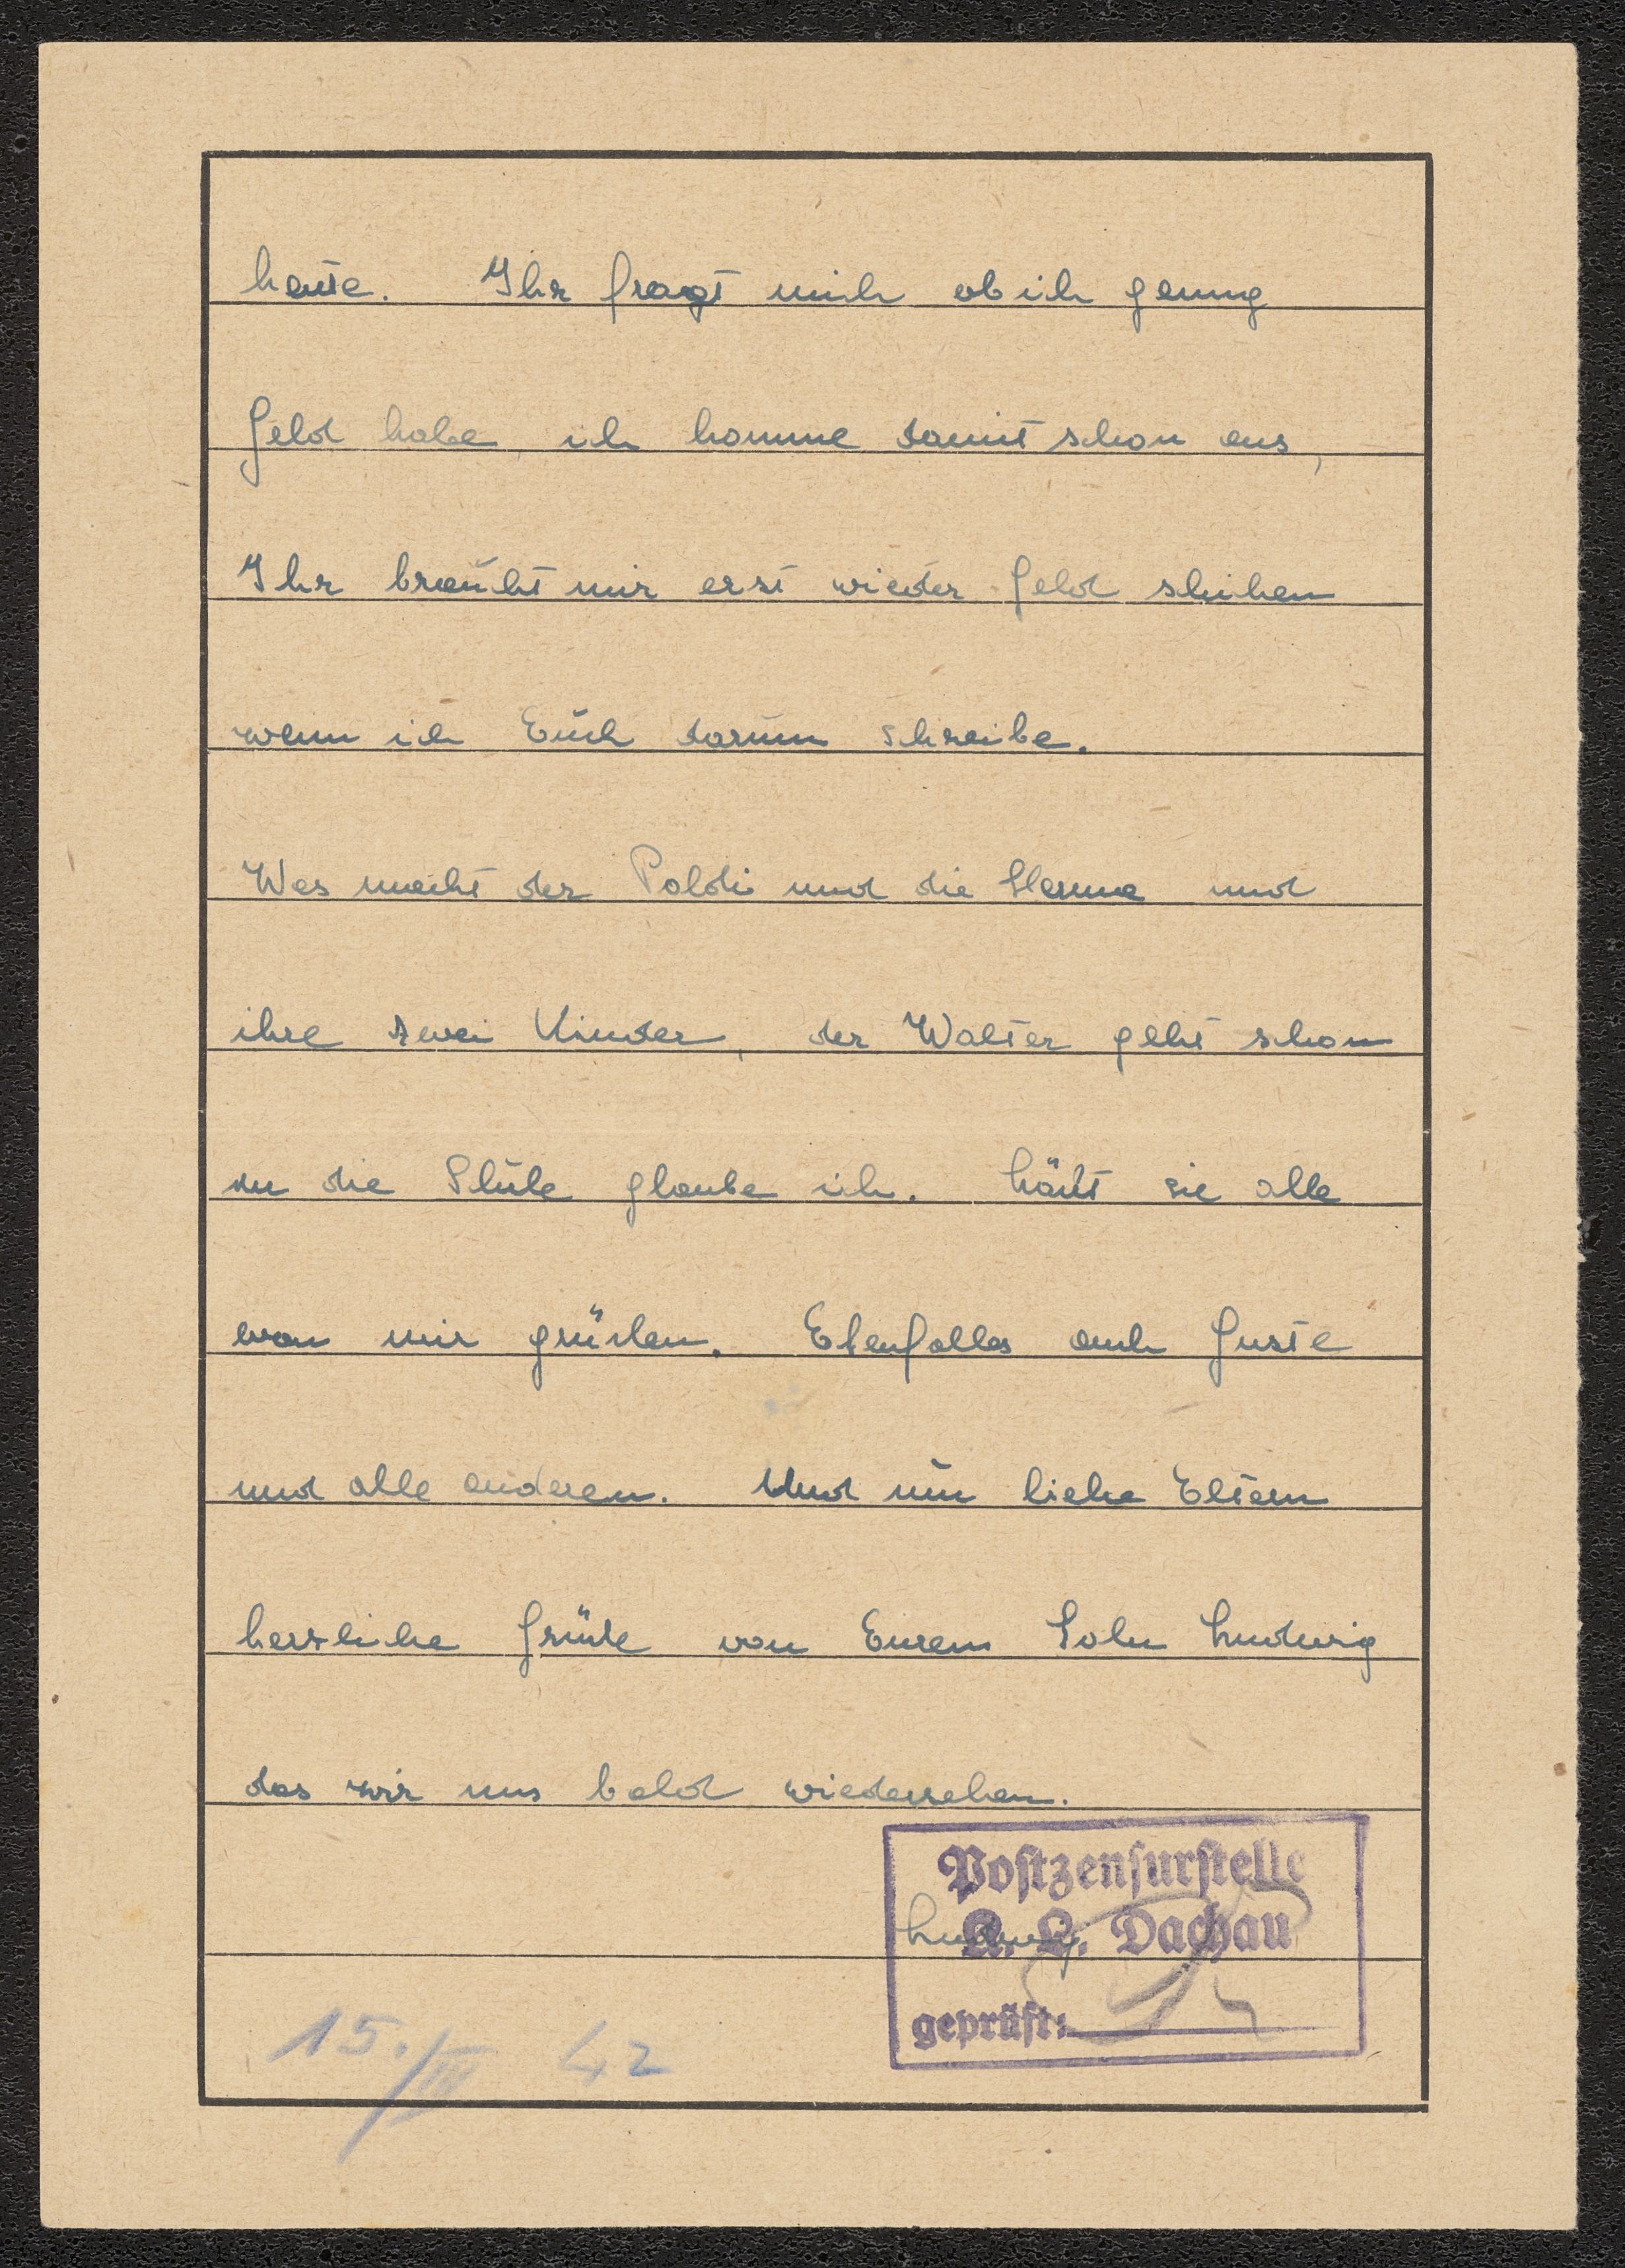 heute. Ihr fragt mich ob ich genug
Geld habe, ich komme damit schon aus,
Ihr braucht mir erst wieder Geld schicken
wenn ich Euch darum schreibe.
Was macht der Poldi und die Hermine und
ihre zwei Kinder, der Walter geht schon
in die Schule glaube ich. Läßt sie alle
von mir grüßen. Ebenfalls auch Guste
und alle anderen. Und nun liebe Eltern
herzliche Grüße von Eurem Sohn Ludwig
das wir uns bald wiedersehen.
Postzensurstelle
K. L. Dachau
Ludwig
geprüft:
15./III 42